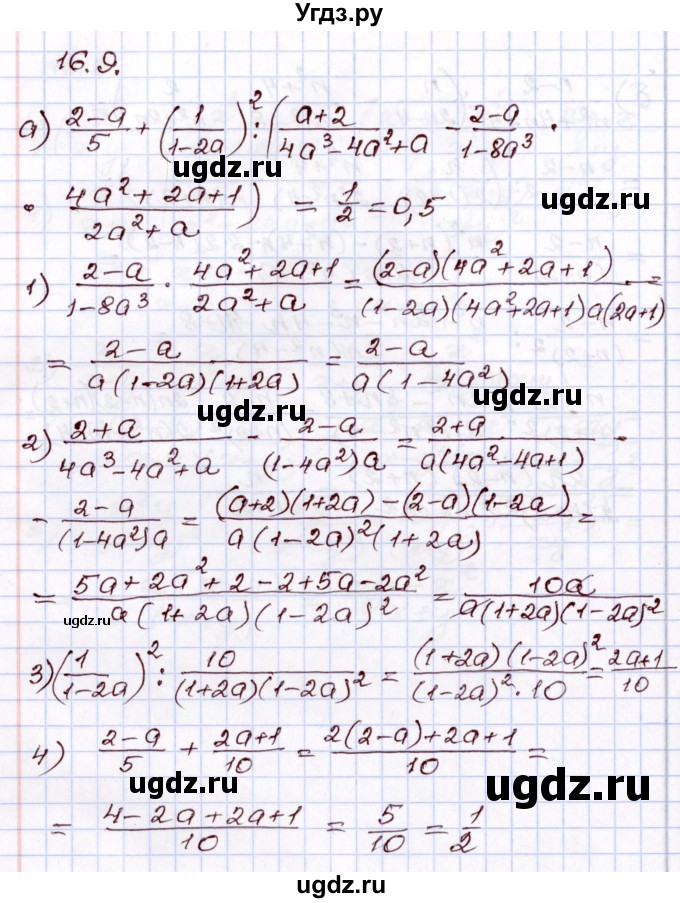 Угдз.ру
16.9.
а) (2-a)/5 + (1/(1-2a))² : ((a+2)/(4a³-4a²+a) - (2-a)/(1-8a³) ·
ugdz.ru
· (4a²+2a+1)/(2a²+a)) = 1/2 = 0,5
ugdz.ru
1) (2-a)/(1-8a³) · (4a²+2a+1)/(2a²+a) = ((2-a)(4a²+2a+1))/((1-2a)(4a²+2a+1)a(2a+1)) =
= (2-a)/(a(1-2a)(1+2a)) = (2-a)/(a(1-4a²))
ugdz.ru
2) (2+a)/(4a³-4a²+a) - (2-a)/((1-4a²)a) = (2+a)/(a(4a²-4a+1)) -
- (2-a)/((1-4a²)a) = ((a+2)(1+2a)-(2-a)(1-2a))/(a(1-2a)²(1+2a)) =
ugdz.ru
= (5a+2a²+2-2+5a-2a²)/(a(1+2a)(1-2a)²) = 10a/(a(1+2a)(1-2a)²)
ugdz.ru
ugdz.ru
3) (1/(1-2a))² : 10/((1+2a)(1-2a)²) = ((1+2a)(1-2a)²)/((1-2a)²·10) = (2a+1)/10
4) (2-a)/5 + (2a+1)/10 = (2(2-a)+2a+1)/10 =
ugdz.ru
ugdz.ru
= (4-2a+2a+1)/10 = 5/10 = 1/2
ugdz.ru